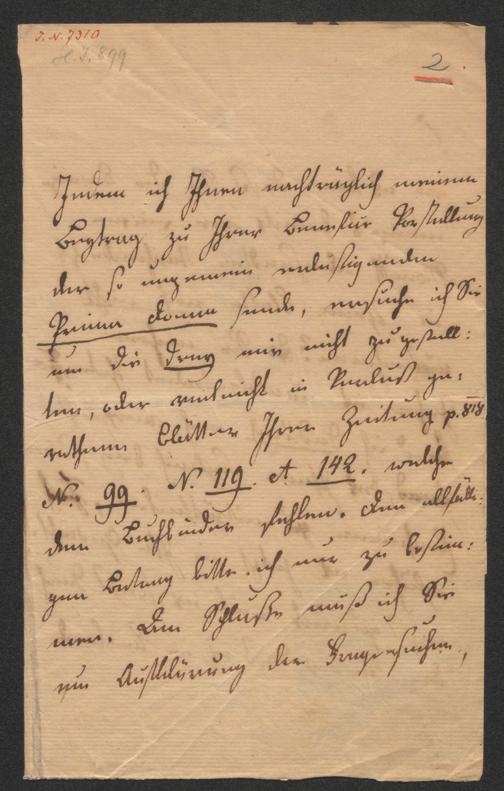 I. N. 7310
H. I. 899
2.
Indem ich Ihnen nachträglich meinen
Beytrag zu Ihrer Benefice Vorstellung
der so ungemein belustigenden
Prima Donna sende, ersuche ich Sie
um die drey mir nicht zugestell:
ten, oder vielleicht in Verlust ge:
rathenen Blätter Ihrer Zeitung p. 818
N. 99. N. 119. et 142. welche
dem Buchbinder fehlen. Den allfälli:
gen Betrag bitte ich nur zu bestim:
men. Am Schluße muß ich Sie
um Aufklärung der ersuchen,